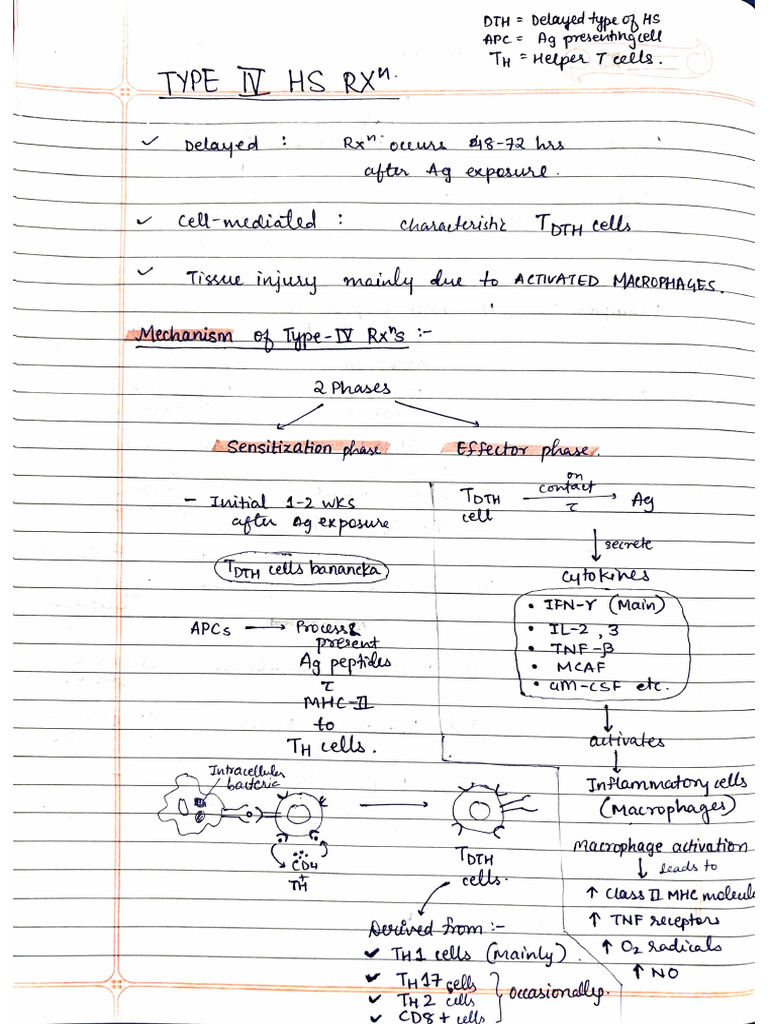 DTH = Delayed type of HS
APC = Ag presenting cell
TH = Helper T cells.
TYPE IV HS RXⁿ.
✓ Delayed : Rxⁿ occurs 48-72 hrs
after Ag exposure.
✓ Cell-mediated : characteristic TDTH cells
✓ Tissue injury mainly due to ACTIVATED MACROPHAGES.
Mechanism of Type-IV Rxⁿs :-
2 Phases
Sensitization phase
- Initial 1-2 wks
after Ag exposure
TDTH cells bananeka
APCs → Process &
present
Ag peptides
c̄
MHC-II
to
TH cells.
Intracellular
bacteria
CD4
+
TH
TDTH
cells.
Derived from :-
✓ TH1 cells (Mainly).
✓ TH17 cells
✓ TH2 cells
✓ CD8+ cells
Occasionally.
Effector phase.
TDTH cell → on contact c̄ Ag
↓ secrete
cytokines
• IFN-γ (Main)
• IL-2, 3
• TNF-β
• MCAF
• GM-CSF etc.
↓
activates
↓
Inflammatory cells
(Macrophages)
Macrophage activation
↓ leads to
↑ Class II MHC molecule
↑ TNF receptors
↑ O2 radicals
↑ NO